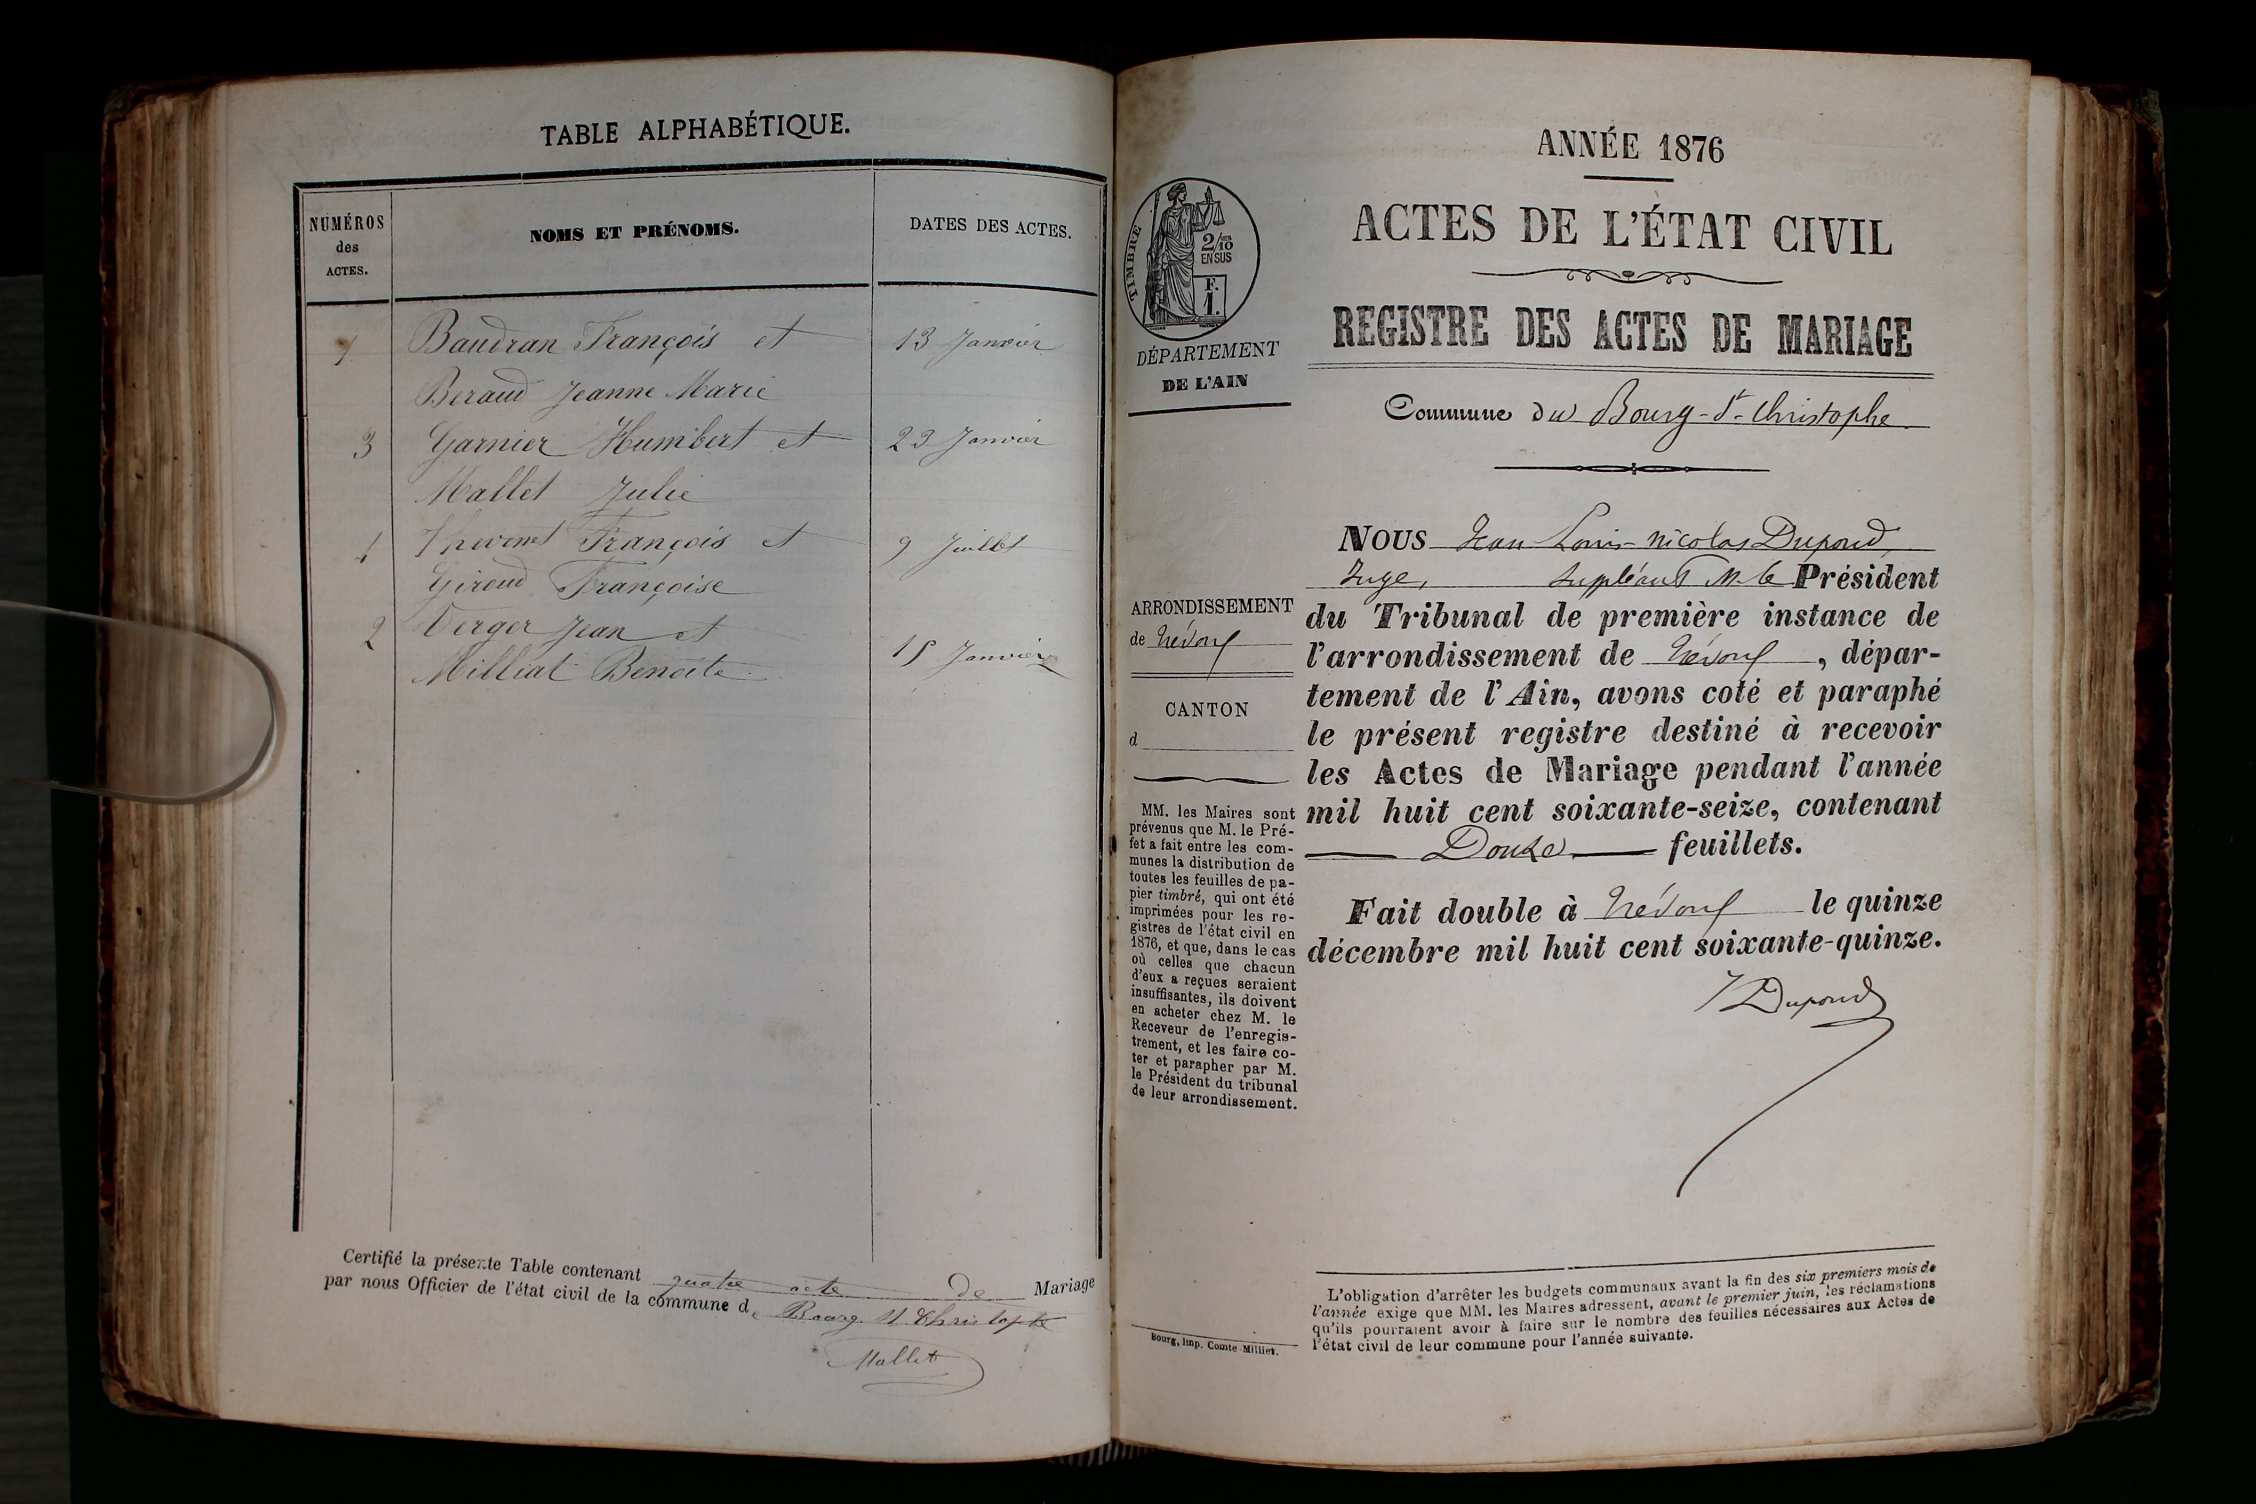 TABLE ALPHABÉTIQUE.
NUMÉROS
des
ACTES.
NOMS ET PRÉNOMS.
DATES DES ACTES.
1 Baudran François et 13 Janvier
Beraud Jeanne Marie
3 Garnier Humbert et 23 Janvier
Mallet Julie
4 Thevenet François et 9 Juillet
Giroud Françoise
2 Verger Jean et
Milliat Benoite 15 Janvier
Certifié la présente Table contenant quatre acte de Mariage
par nous Officier de l'état civil de la commune de Bourg St Christophe
Mallet
ANNÉE 1876
ACTES DE L'ÉTAT CIVIL
REGISTRE DES ACTES DE MARIAGE
Commune du Bourg-St-Christophe
TIMBRE
2/10
EN SUS
F.
1.
DÉPARTEMENT
DE L'AIN
ARRONDISSEMENT
de Trévoux
CANTON
d
MM. les Maires sont
prévenus que M. le Pré-
fet a fait entre les com-
munes la distribution de
toutes les feuilles de pa-
pier timbré, qui ont été
imprimées pour les re-
gistres de l'état civil en
1876, et que, dans le cas
où celles que chacun
d'eux a reçues seraient
insuffisantes, ils doivent
en acheter chez M. le
Receveur de l'enregis-
trement, et les faire co-
ter et parapher par M.
le Président du tribunal
de leur arrondissement.
Bourg, imp. Comte-Milliet.
NOUS Jean Louis-Nicolas Dupond,
Juge, supléant M. le Président
du Tribunal de première instance de
l'arrondissement de Trévoux, dépar-
tement de l'Ain, avons coté et paraphé
le présent registre destiné à recevoir
les Actes de Mariage pendant l'année
mil huit cent soixante-seize, contenant
Douze feuillets.
Fait double à Trévoux le quinze
décembre mil huit cent soixante-quinze.
Dupond
L'obligation d'arrêter les budgets communaux avant la fin des six premiers mois de
l'année exige que MM. les Maires adressent, avant le premier juin, les réclamations
qu'ils pourraient avoir à faire sur le nombre des feuilles nécessaires aux Actes de
l'état civil de leur commune pour l'année suivante.